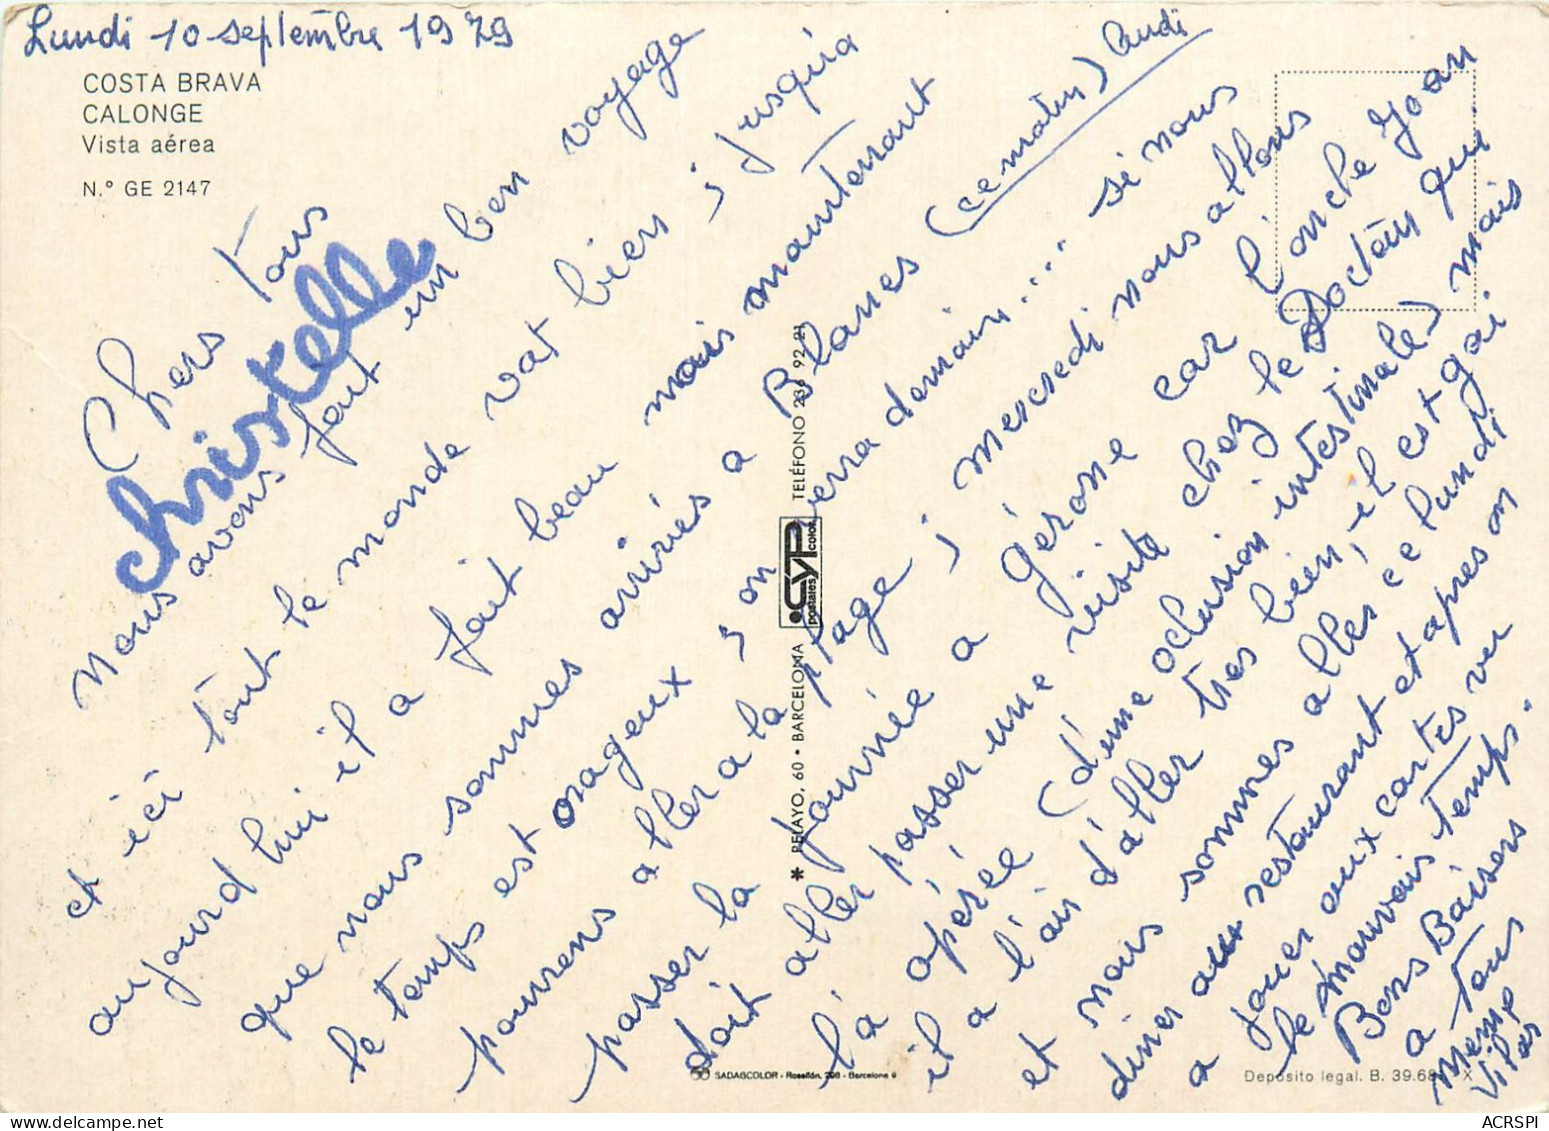 Lundi 10 septembre 1979
COSTA BRAVA
CALONGE
Vista aérea
N.º GE 2147
Chers tous
christelle
nous avons fait un bon voyage
et ici tout le monde vat bien, jusqu'a
aujourd hui il a fait beau mais maintenant
que nous sommes arrivés a Blanes (ce matin) lundi
le temps est orageux, on verra demain.... si nous
pourrens aller a la plage, mercredi nous allons
passer la journée a gérone car l'oncle Joan
doit aller passer une visite chez le Docteur qui
l'á opérée (d'une oclusion intestinale) mais
il a l'air d'aller tres bien, il est gai
et nous sommes allés ce lundi
diner au restaurant et apres on
a jouer aux cartes vu
le mauvais temps.
Bons Baisers
a tous
* PELAYO, 60 • BARCELONA
CYP
postales
color
TELÉFONO 236 92 21
SADAGCOLOR - Rosellón, 298 - Barcelona 9
Depósito legal. B. 39.68 X
ACRSPI